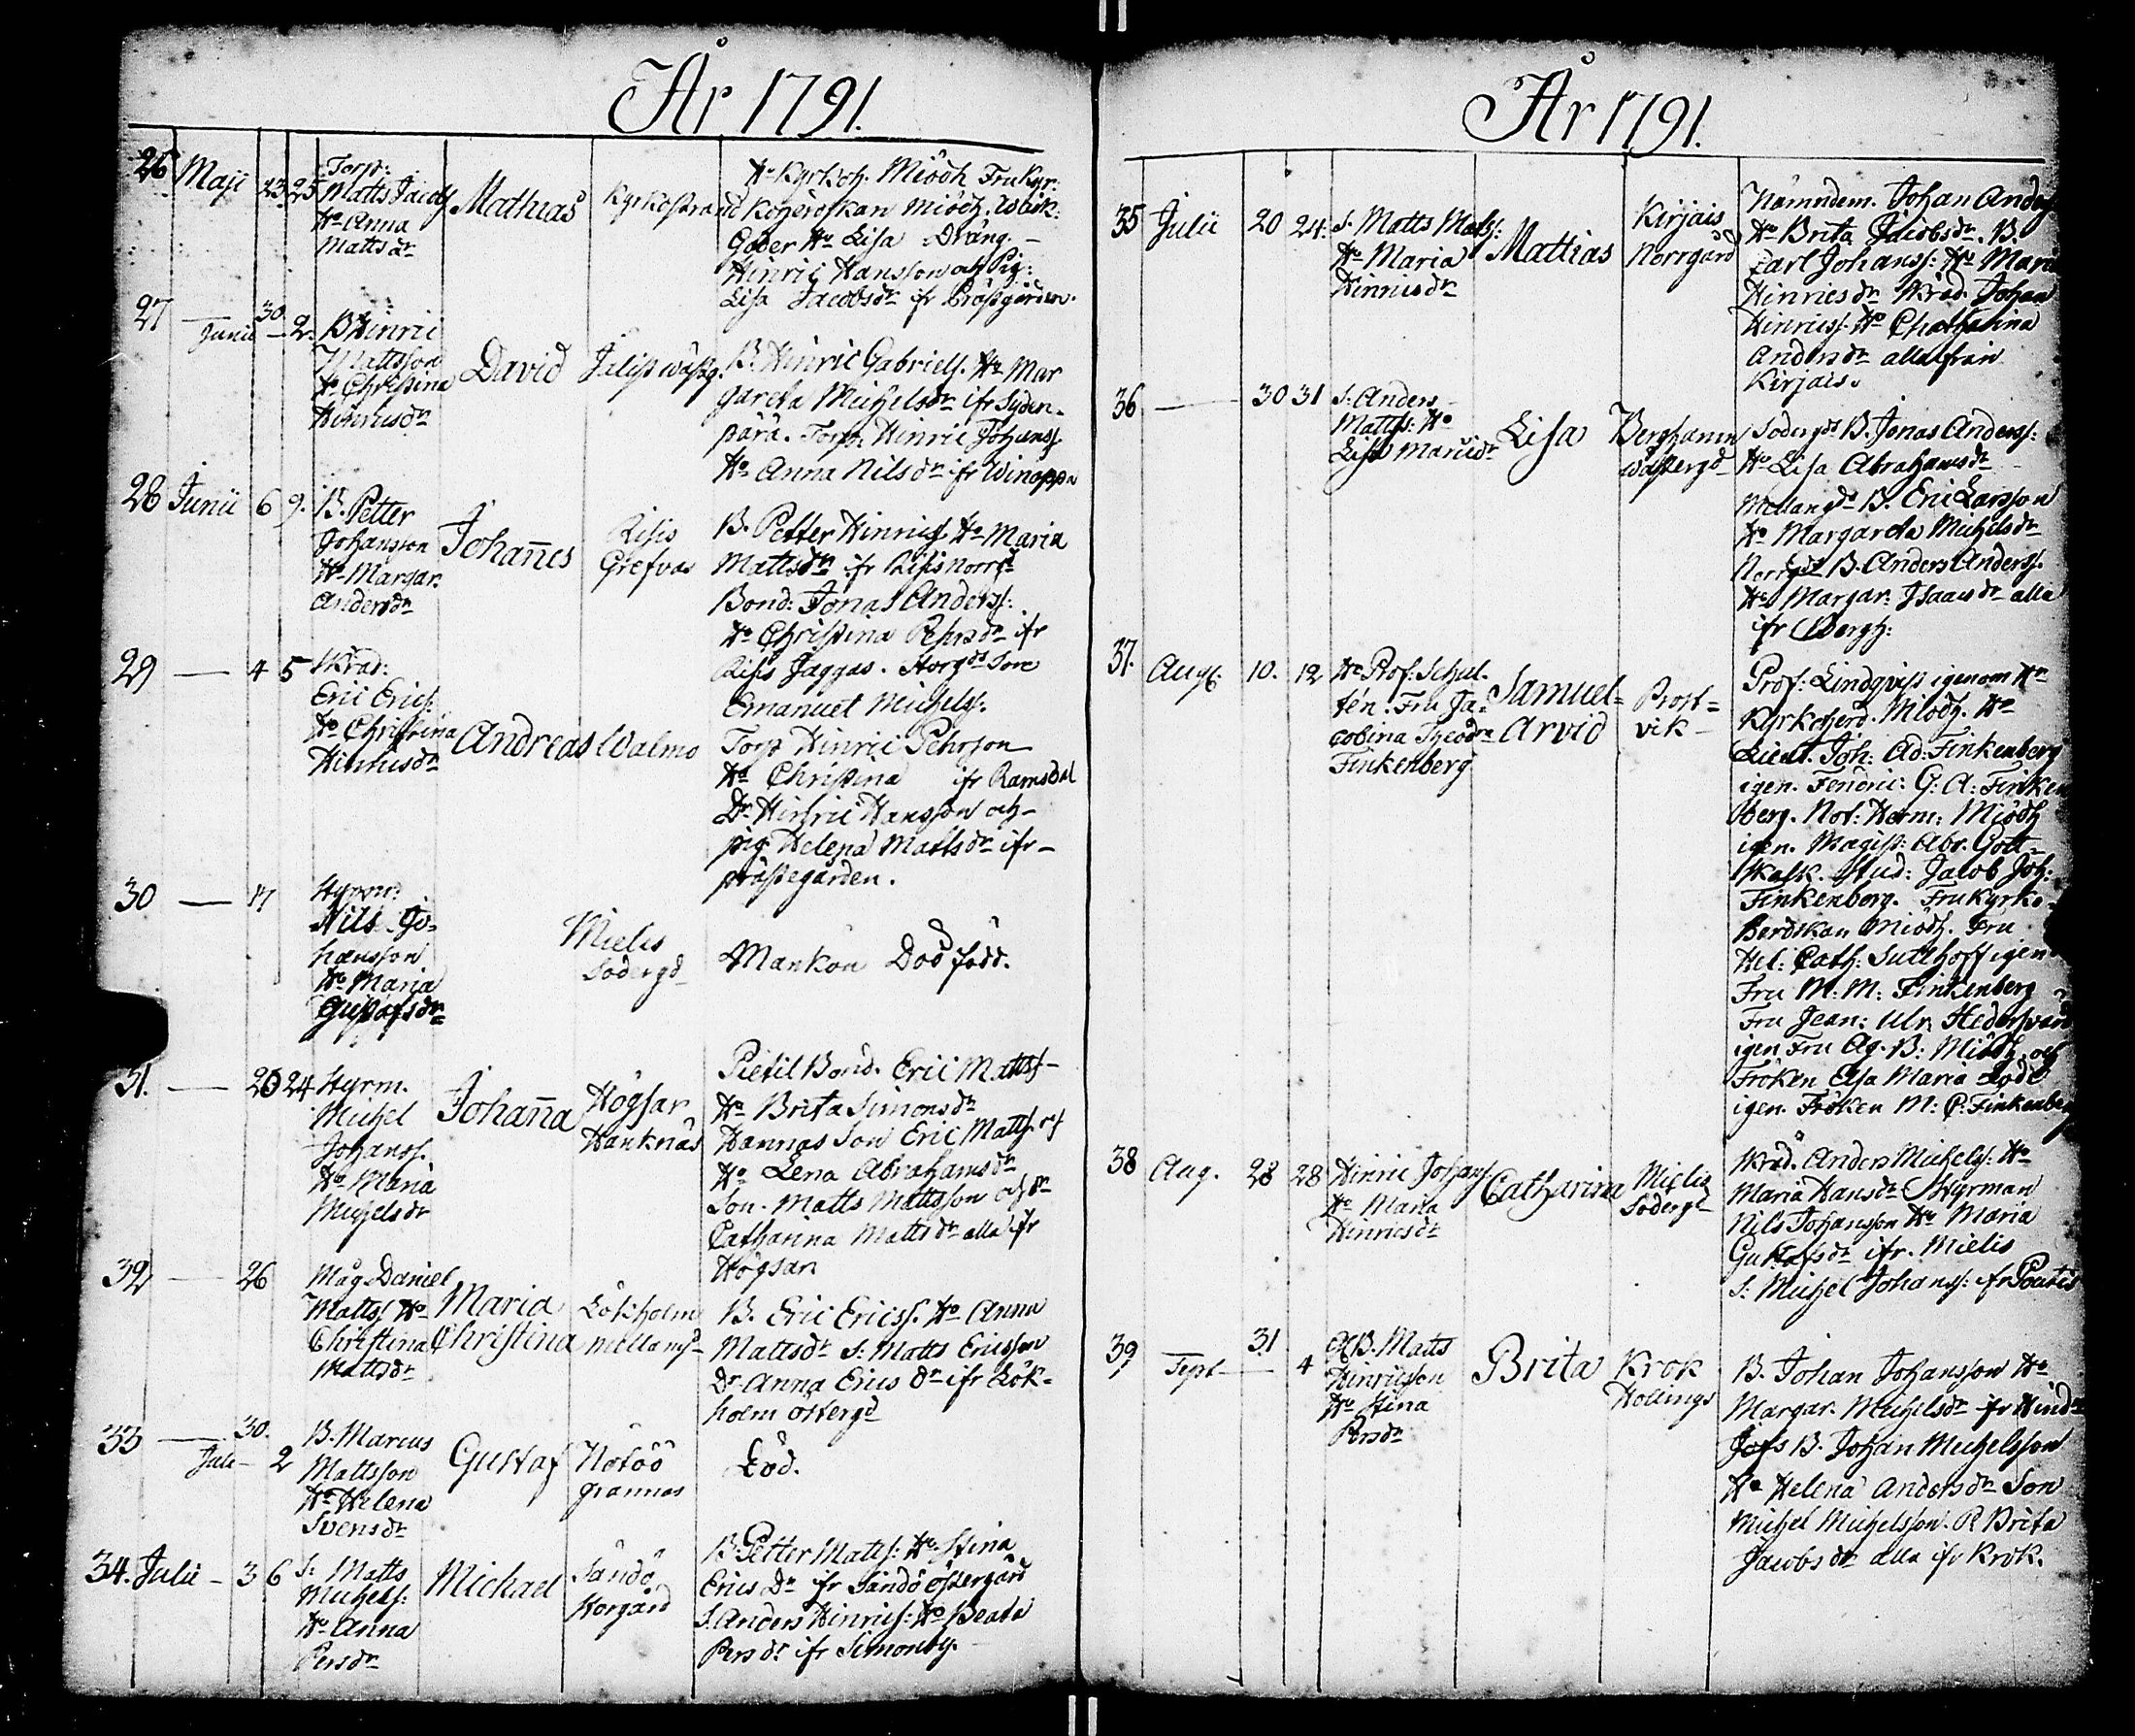 År 1791.
26 Maji 23. 25
Torp:
Matts Jacobs
Ho Anna
Mattsdr
Mathias
Kyrkostrand
Hr Kyrkoh. Miödh Fru Kyr-
Koherdskan Miödh.
Göder Ho Lisa Dräng.
Hinric Hansson och Pig:
Lisa Jacobsdr ifr Prästgården.
27 — 30.
Junii — 2.
B. Hinric
Mattsson
Ho Christina
Hinricsdr
David
B. Hinric Gabriels. Ho Mar
gareta Michelsdr ifr Syden-
pärä. Torp. Hinric Johanss.
Ho Anna Nilsdr ifr Winappa
28 Junii 6 9.
B. Petter
Johansson
Ho Margar.
Andersdr
Johannes
Risis
Grefvas
B. Petter Hinrics. Ho Maria
Mattsdr ifr Risis Norrgd
Bond: Jonas Anderss:
Ho Christina Pehrsdr ifr
Risis Jaggas. Storgds Son
Emanuel Michelss.
29 — 4 5
Skräd:
Eric Erics:
Ho Christina
Hinricsdr
Andreas
Walmo
Torp Hinric Pehrson
Ho Christina ifr Ramsdal
Dr. Hinric Hansson och
pig Helena Mattsdr ifr
prästegården.
30 — 17
Styrm:
Nils Jo-
hansson
Ho Maria
Gustafsdr
Mielis
Södergd
Mankön Död född.
31. — 23 24
Styrm.
Michel
Johanss.
Ho Maria
Michelsdr
Johanna
Högsar
Hanknäs
Pietil Bond. Eric Matts
Ho Brita Simonsdr
Hannas Son Eric Matts. 
Ho Lena Abrahamsdr
Son. Matts Mattsson och dr
Catharina Mattsdr alla ifr
Högsar
32 — 26
Måg Daniel
Matts Ho
Christina
Mattsdr
Maria
Christina
Lökholm
mellang
B. Eric Ericss. Ho Anna
Mattsdr S: Matts Ericsson
Dr Anna Ericsdr ifr Lök-
holm östergd
33 — 30.
Juli — 2
B. Marcus
Mattsson
Ho Helena
Svensdr
Gustaf
Nötöö
grannas
Död.
34. Julii — 3 6
S. Matts
Michels:
Ho Anna
Persdr
Michael
Sandö
Storgård
B: Petter Matts: Ho Stina
Ericsdr ifr Sandö östergård
S. Anders Hinrics: Ho Beata
Persdr ifr Simonby.
År 1791.
35 Julii 20 24:
S. Matts Mats:
Ho Maria
Hinricsdr
Mattias
Kirjais
Norrgård
Nämndem. Johan Anders
Ho Brita Jacobsdr. B.
Carl Johanss: Ho Maria
Hinricsdr Skräd. Johan
Hinricss. Ho Chatharina
Andersdr alla från
Kirjais.
36 — 30 31
S. Anders
Matts: Ho
Lisa Maricdr
Lisa
Berghamn
Wästergd
Södergds B. Jonas Anderss:
Ho Lisa Abrahamsdr
Mellangds B. Eric Larsson
Ho Margareta Michelsdr
Norrgds B. Anders Anderss.
Ho Margar: Isaacsdr alla
ifr Bergh:
37. Augt. 10. 12
Hr Prof: Schul-
tén. Fru Ja-
cobina Theodra
Finkenberg
Samuel-
Arvid
Prost-
vik
Prof: Lindqvist igenom Hr
Kyrkoherd. Miödh. Hr
Lieut. Joh: Ad: Finkenberg
igen. Fendric: G: A: Finken
berg. Not: Herm: Miödh
igen. Magist: Abr. Gott-
skalk. Stud: Jacob Joh:
Finkenberg. Fru Kyrko-
herdskan Miödh. Fru
Hel: Cath: Sutthoff igen
Fru M: M: Finkenberg
Fru Jean: Ulr. Hedersvärd
igen Fru Ag. B: Miödh och
Fröken Elsa Maria Lode
igen. Fröken M: C: Finkenberg
38 Aug. 28 28
Hinric Johans
Ho Maria
Hinricsdr
Catharina
Mielis
Södergd
Skräd. Anders Michelss: Ho
Maria Hansdr Styrman
Nils Johansson Ho Maria
Gustafsdr ifr. Mielis
S: Michel Johanss: ifr Poutis
39 31
Sept — 4
B. Matts
Hinricsson
Ho Stina
Persdr
Brita
Krok
Kollings
B. Johan Johansson Ho
Margar. Michelsdr ifr
Jofs B. Johan Michelsson
Ho Helena Andersdr Son
Michel Michelsson. P. Brita
Jacobsdr alla ifr Krok.